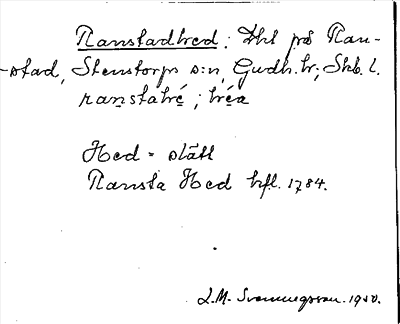 Ranstadhed; Dkt på Ran-
-stad, Stenstorps s:n, Gudh. hr; Skb. l.
ranstahé; héa
Hed = slätt
Ransta Hed hfl. 1784.
L.M. Svenungsson. 1950.